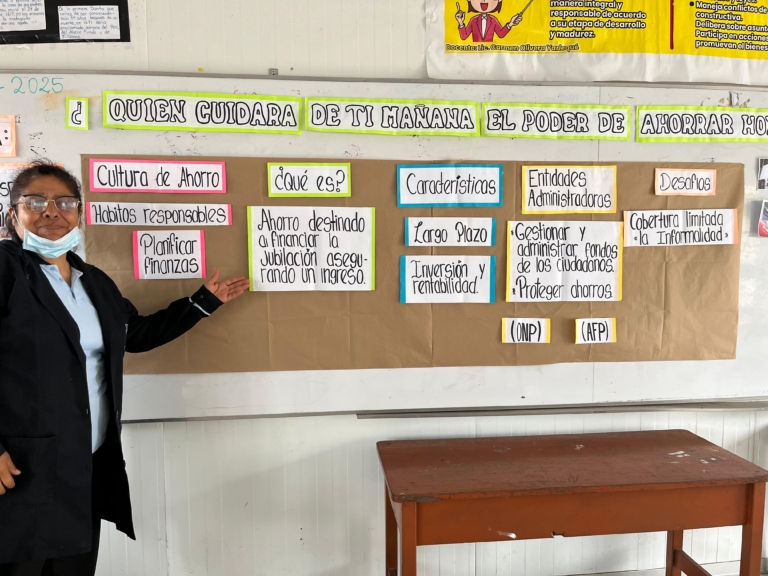 manera integral y
responsable de acuerdo
a su etapa de desarrollo
y madurez.
Manejo conflictos de
constructiva.
Delibera sobre asunt
Participa en acciones
promuevan el bienes
Docente: Lic.
2025
¿ QUIEN CUIDARA DE TI MAÑANA EL PODER DE AHORRAR HO
Cultura de Ahorro
Habitos responsables
Planificar
finanzas
¿Qué es?
Ahorro destinado
a financiar la
jubilación asegu-
rando un ingreso.
Caracteristicas
Largo Plazo
Inversión y
rentabilidad.
Entidades
Administradoras
Gestionar y
administrar fondos
de los ciudadanos.
Proteger ahorros.
(ONP) (AFP)
Desafios
Cobertura limitada
la Informalidad